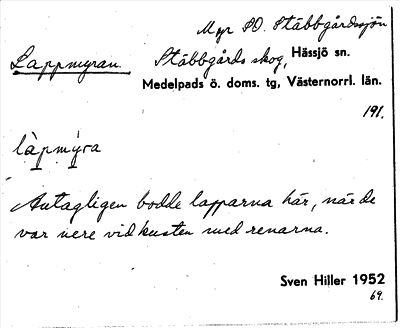 Myr SO. Stäbbgårdssjön
Lappmyran. Stäbbgårds skog, Hässjö sn.
Medelpads ö. doms. tg, Västernorrl. län.
191.
làpmýra
Antagligen bodde lapparna här, när de
var nere vid kusten med renarna.
Sven Hiller 1952
69.